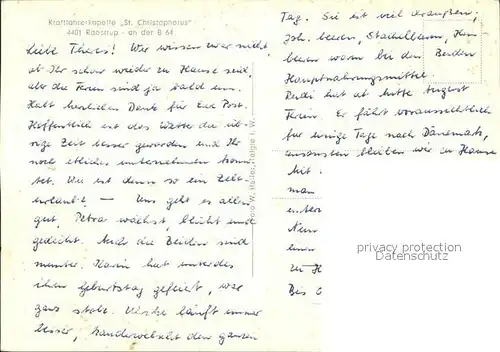 Kraftfahrerkapelle „St. Christophorus"
4401 Raestrup - an der B 64
liebe Theres! Wir wissen zwar nicht,
ob Ihr schon wieder zu Hause seid,
aber die Ferien sind ja bald um.
Habt herzlichen Dank für Eure Post.
Hoffentlich ist das Wetter die üb-
rige Zeit besser geworden und Ihr
noch etliches unternehmen konn-
tet. Wie ist denn so ein Zelt-
urlaub? — Uns geht es allen
gut, Petra wächst, blüht und
gedeiht. Auch die Beiden sind
munter. Karin hat unterdes
ihren Geburtstag gefeiert, war
ganz stolz. Ulrike läuft immer
besser, kauderwelscht den ganzen
Foto W.
Tag. Sie ist viel draußen,
Joh. beeren, Stachelbeeren, Him
beeren waren bei den Beiden
Hauptnahrungsmittel.
hat ab Mitte August
Ferien. Er fährt voraussichtlich
für einige Tage nach Dänemark,
ansonsten bleiben wir zu Hause
Mit
man
einen
zu H
Bis
privacy protection
www.ansichtskarten-center.de